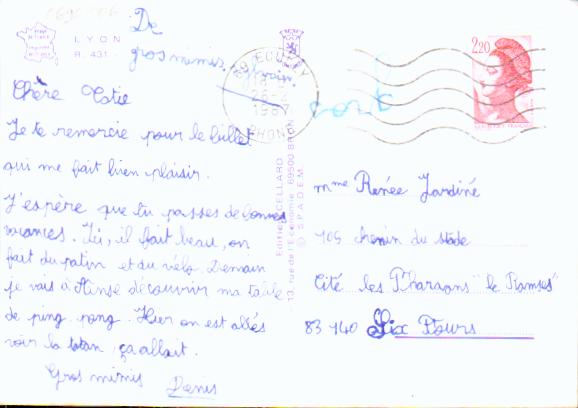 De
gros mimis. Sylvain.
LYON
R. 431
Chère Tatie
Je te remercie pour le bullet
qui me fait bien plaisir.
J'espère que tu passes de bonnes
vacances. Ici, il fait beau, on
fait du patin et du vélo. Demain
je vais à découvrir ma table
de ping pong. Hier on est allés
voir la tatan, ça allait.
Gros mimis Denis
69 ECULLY
1987
RHONE
2,20
Editions CELLARD
13, rue de l'Economie 69500 BRON
© S.P.A.D.E.M.
mme Renée Jardiné
105 chemin du stade
Cité les Pharaons "le Ramses"
83 140 Six Fours